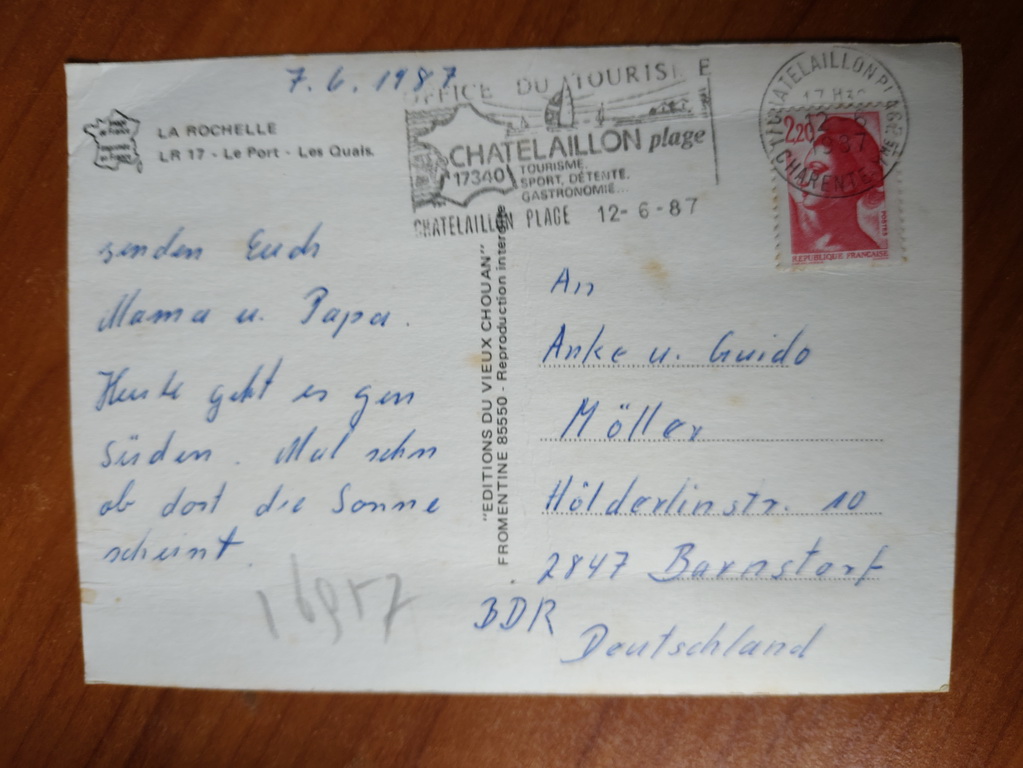 7.6.1987
OFFICE DU TOURISME
CHATELAILLON plage
17340
TOURISME.
SPORT, DÉTENTE.
GASTRONOMIE...
CHATELAILLON PLAGE 12-6-87
17 CHATELAILLON PLAGE
17H30
12-6
1987
CHARENTE-MME
2,20
POSTES
REPUBLIQUE FRANÇAISE
LA ROCHELLE
LR 17 - Le Port - Les Quais.
senden Euch
Mama u. Papa.
Heute geht es gen
Süden. Mal sehn
ob dort die Sonne
scheint.
"EDITIONS DU VIEUX CHOUAN"
FROMENTINE 85550 - Reproduction interdite
An
Anke u. Guido
Möller
Hölderlinstr. 10
2847 Barnstorf
BDR
Deutschland